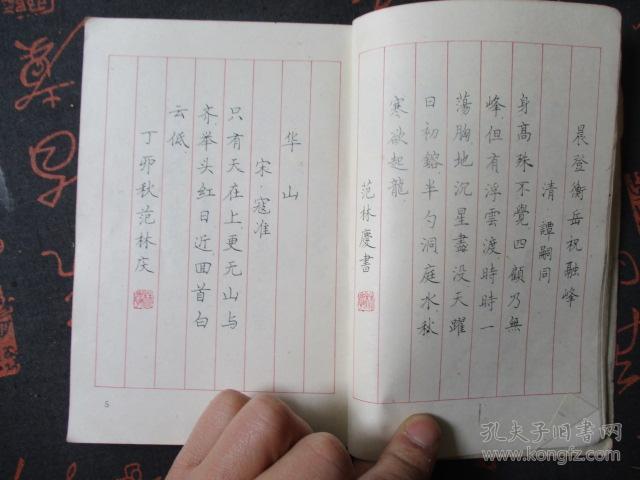 晨登衡岳祝融峰
清 譚嗣同
身高殊不覺四顧乃無
峰但有浮雲渡時時一
蕩胸地沉星盡没天躍
日初鎔半勺洞庭水秋
寒欲起龍
范林慶書
华山
宋·寇准
只有天在上更无山与
齐举头红日近回首白
云低
丁卯秋范林庆
5
孔夫子旧书网
www.kongfz.com